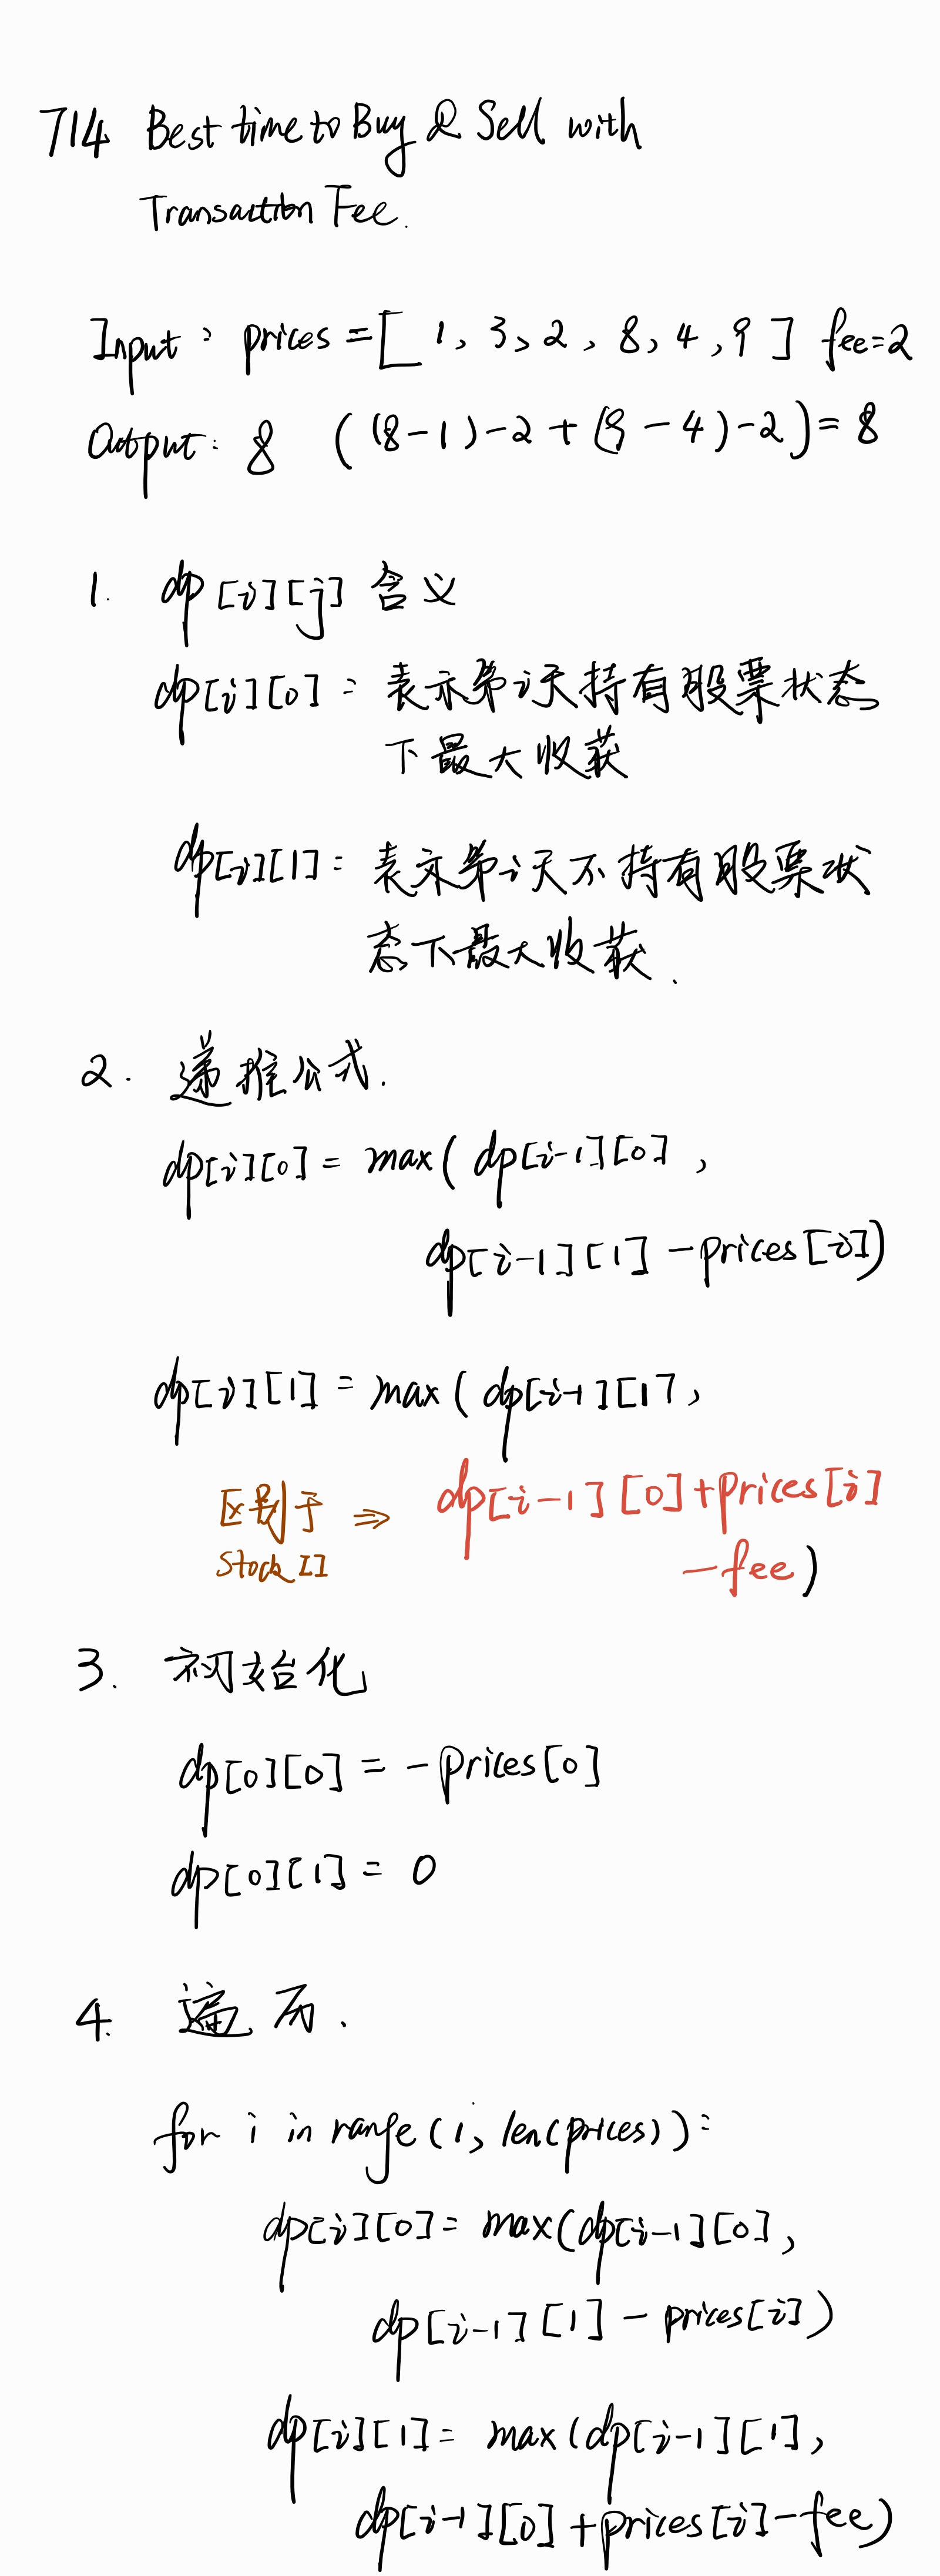 714 Best time to Buy & Sell with
Transaction Fee.
Input: prices = [1, 3, 2, 8, 4, 9] fee=2
Output: 8 ((8-1)-2+(9-4)-2)=8
1. dp[i][j] 含义
dp[i][0]: 表示第i天持有股票状态
下最大收获
dp[i][1]: 表示第i天不持有股票状
态下最大收获.
2. 递推公式.
dp[i][0] = max(dp[i-1][0],
dp[i-1][1] - prices[i])
dp[i][1] = max(dp[i-1][1],
区别于 ⇒ dp[i-1][0]+prices[i]
Stock II -fee)
3. 初始化
dp[0][0] = -prices[0]
dp[0][1] = 0
4. 遍历.
for i in range(1, len(prices)):
dp[i][0] = max(dp[i-1][0],
dp[i-1][1] - prices[i])
dp[i][1] = max(dp[i-1][1],
dp[i-1][0]+prices[i]-fee)